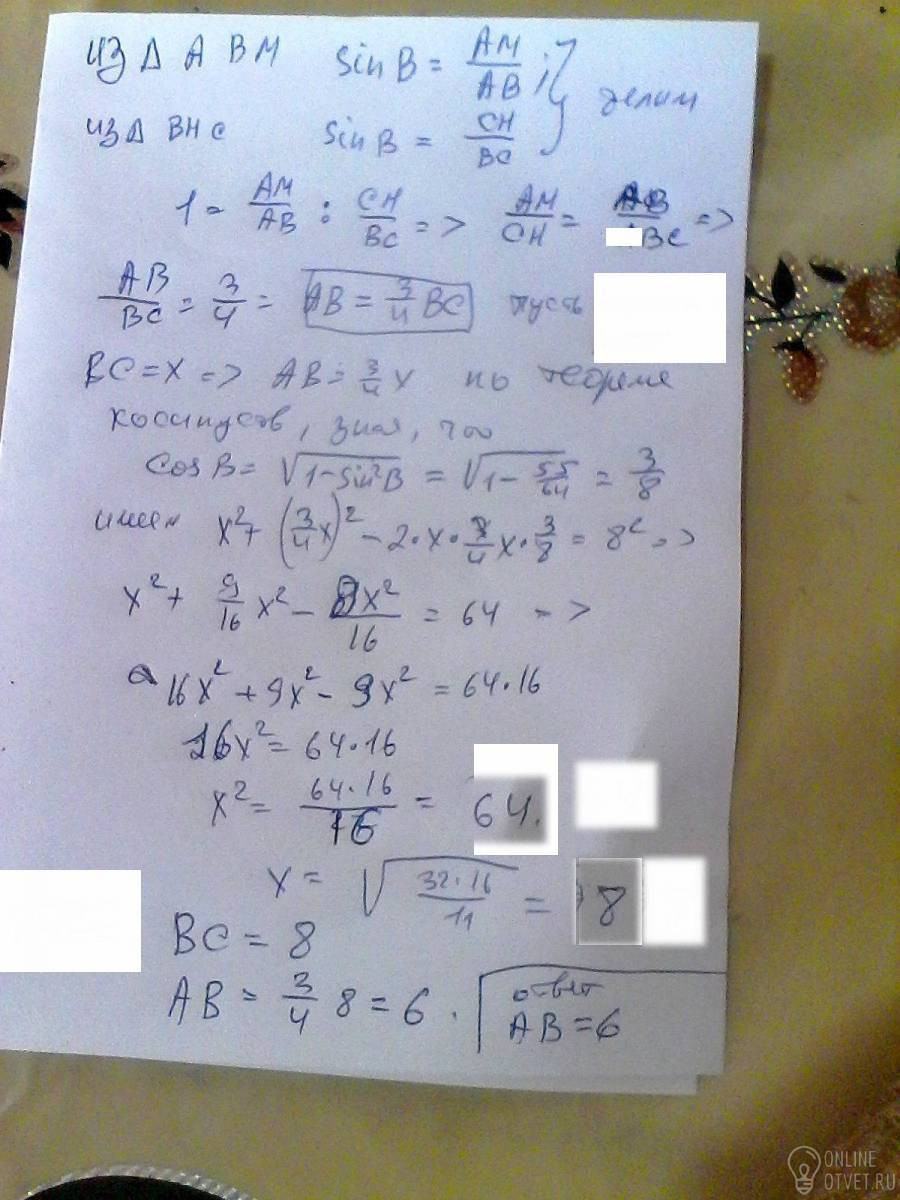 из Δ ABM sin B = AM/AB ;
из Δ BHC sin B = CH/BC } делим
1 = AM/AB : CH/BC => AM/CH = AB/BC =>
AB/BC = 3/4 = AB = 3/4 BC пусть
BC = x => AB = 3/4 x по теореме
косинусов, зная, что
cos B = √(1-sin²B) = √(1 - 55/64) = 3/8
имеем x² + (3/4 x)² - 2·x·3/4 x·3/8 = 8² =>
x² + 9/16 x² - 9x²/16 = 64 =>
16x² + 9x² - 9x² = 64·16
16x² = 64·16
x² = 64·16/16 = 64.
x = √(32·16/11) = 8
BC = 8
AB = 3/4 8 = 6 .
ответ
AB = 6
ONLINE
OTVET.RU